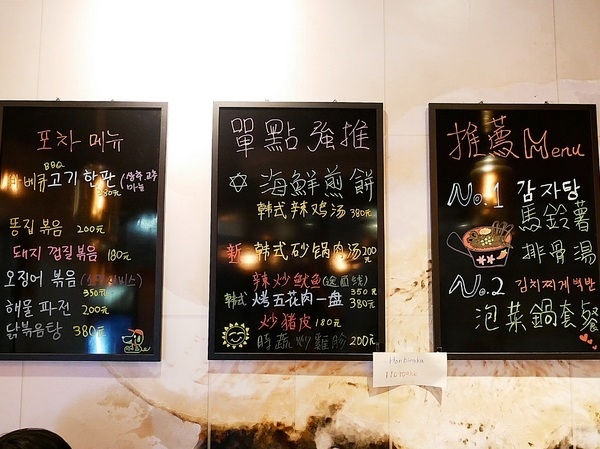 포차 메뉴
BBQ
바베큐고기 한판 (상추, 고추
마늘
똥집 볶음 200元
돼지 껍질볶음 180元
오징어 볶음
350元
해물 파전 200元
닭볶음탕 380元
單點強推
海鮮煎餅
韩式辣鸡汤 380元
新 韩式砂锅肉汤 200元
辣炒鱿鱼
350元
韩式烤五花肉一盘 380元
炒猪皮 180元
時蔬炒雞胗 200元
推薦Menu
No.1 감자탕
馬鈴薯
排骨湯
No.2 김치찌개백반
泡菜鍋套餐